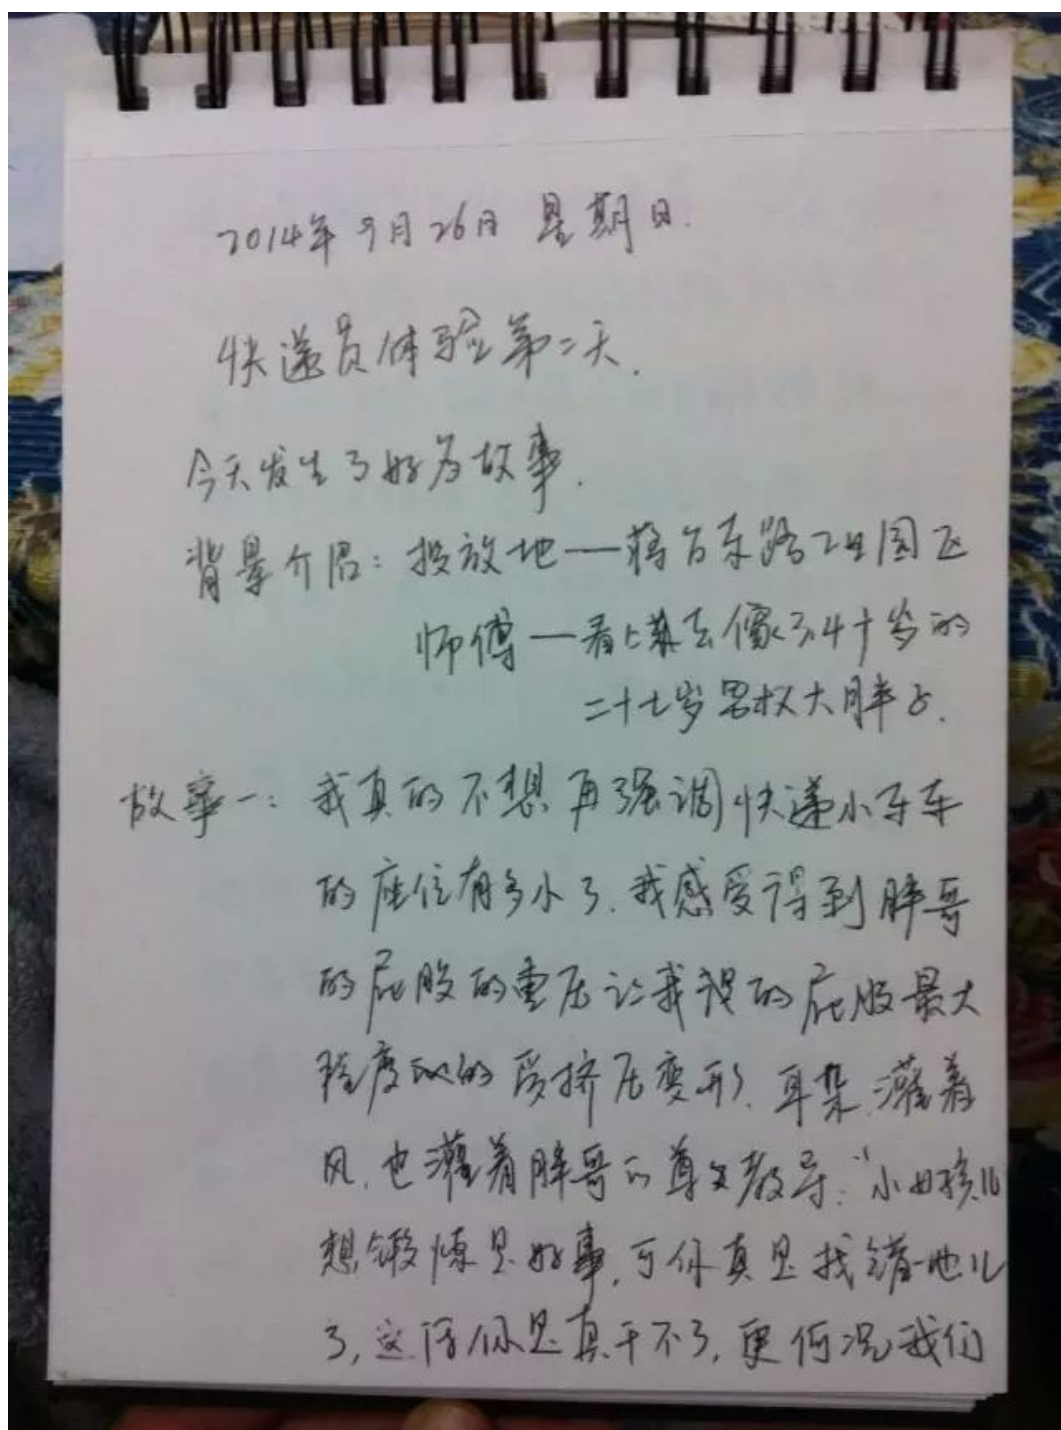 2014年9月26日 星期日.
快递员体验第二天.
今天发生了好多故事.
背景介绍: 投放地——蒋台东路工业园区
师傅——看上去像34十岁的
二十七岁男大胖子.
故事一: 我真的不想再强调快递小车车
的座位有多小了.我感受得到胖哥
的屁股的重压让我的屁股最大
程度的受挤压变形.耳朵灌着
风,也灌着胖哥的尊敬教导:“小女孩儿
想锻炼是好事,可你真是找错地儿
了,这活你是真干不了,更何况我们